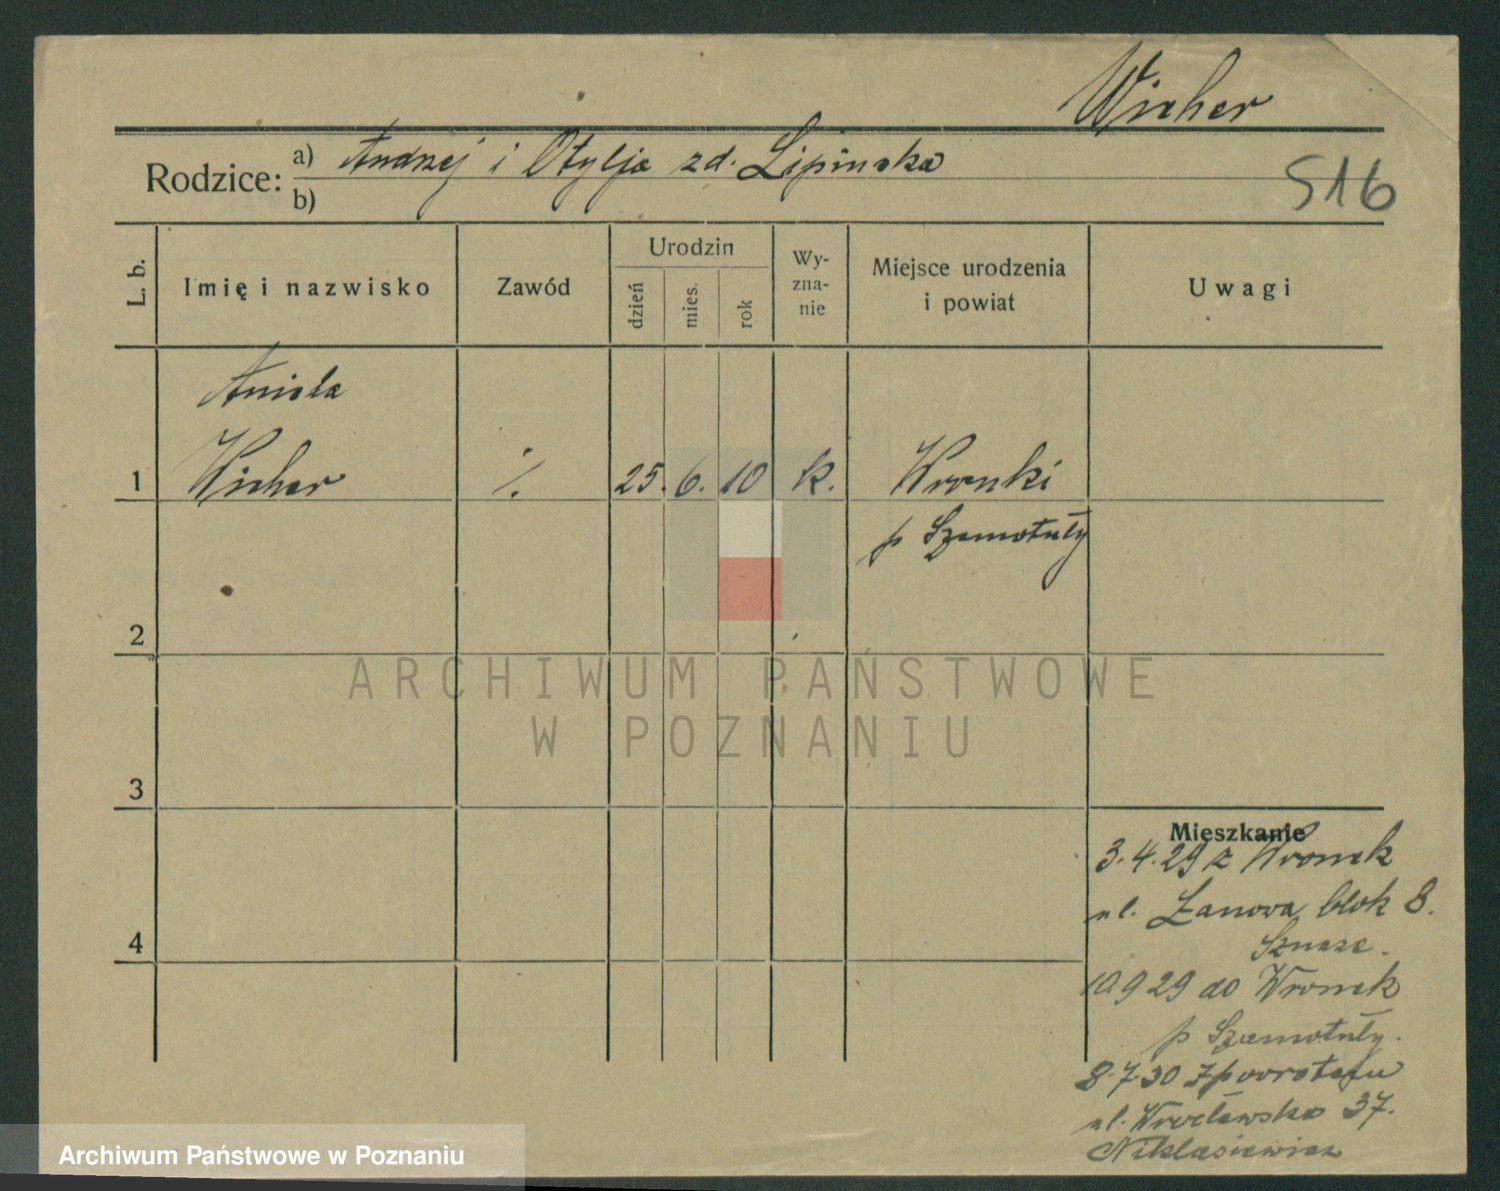 Wicher
Rodzice: a) Andrzej i Otylja zd. Lipinska
b)
516
L. b.
Imię i nazwisko
Zawód
Urodzin
dzień
mies.
rok
Wy-
zna-
nie
Miejsce urodzenia
i powiat
Uwagi
Aniela
1 Wicher ./. 25. 6. 10 k. Wronki
p Szamotuły
2
3
4
ARCHIWUM PAŃSTWOWE
W POZNANIU
Mieszkanie
3.4.29 z Wronek
ul. Łanowa, blok 8.
10.9 29 do Wronek
p Szamotuły.
8.7.30 z powrotem
ul. Wrocławska 37.
Niklasiewicz
Archiwum Państwowe w Poznaniu